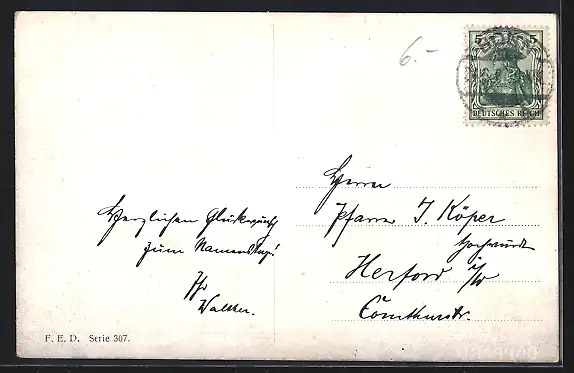 6.-
5 5
DEUTSCHES REICH
Herrn
Pfarrer J. Köper
Hochwürden
Herford i/W
Comthurstr.
Herzlichen Glückwunsch
zum Namenstag!
Ihr
Walther.
F. E. D. Serie 307.